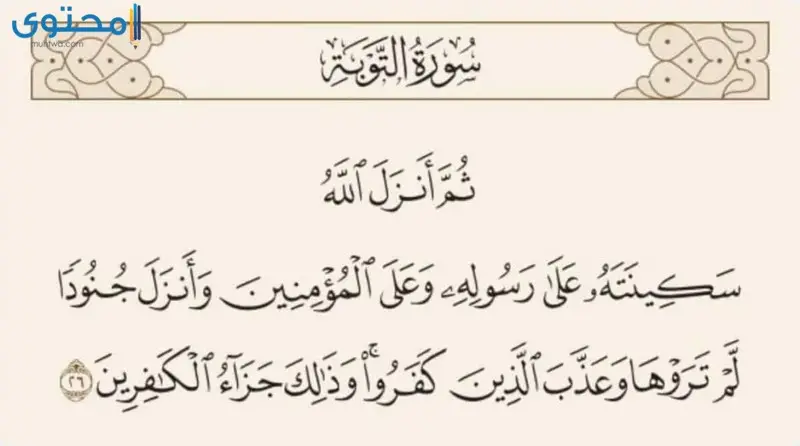 محتوى
muhtwa.com
سُورَةُ التَّوْبَةِ
ثُمَّ أَنزَلَ ٱللَّهُ
سَكِينَتَهُۥ عَلَىٰ رَسُولِهِۦ وَعَلَى ٱلْمُؤْمِنِينَ وَأَنزَلَ جُنُودًا
لَّمْ تَرَوْهَا وَعَذَّبَ ٱلَّذِينَ كَفَرُوا۟ ۚ وَذَٰلِكَ جَزَآءُ ٱلْكَٰفِرِينَ ٢٦